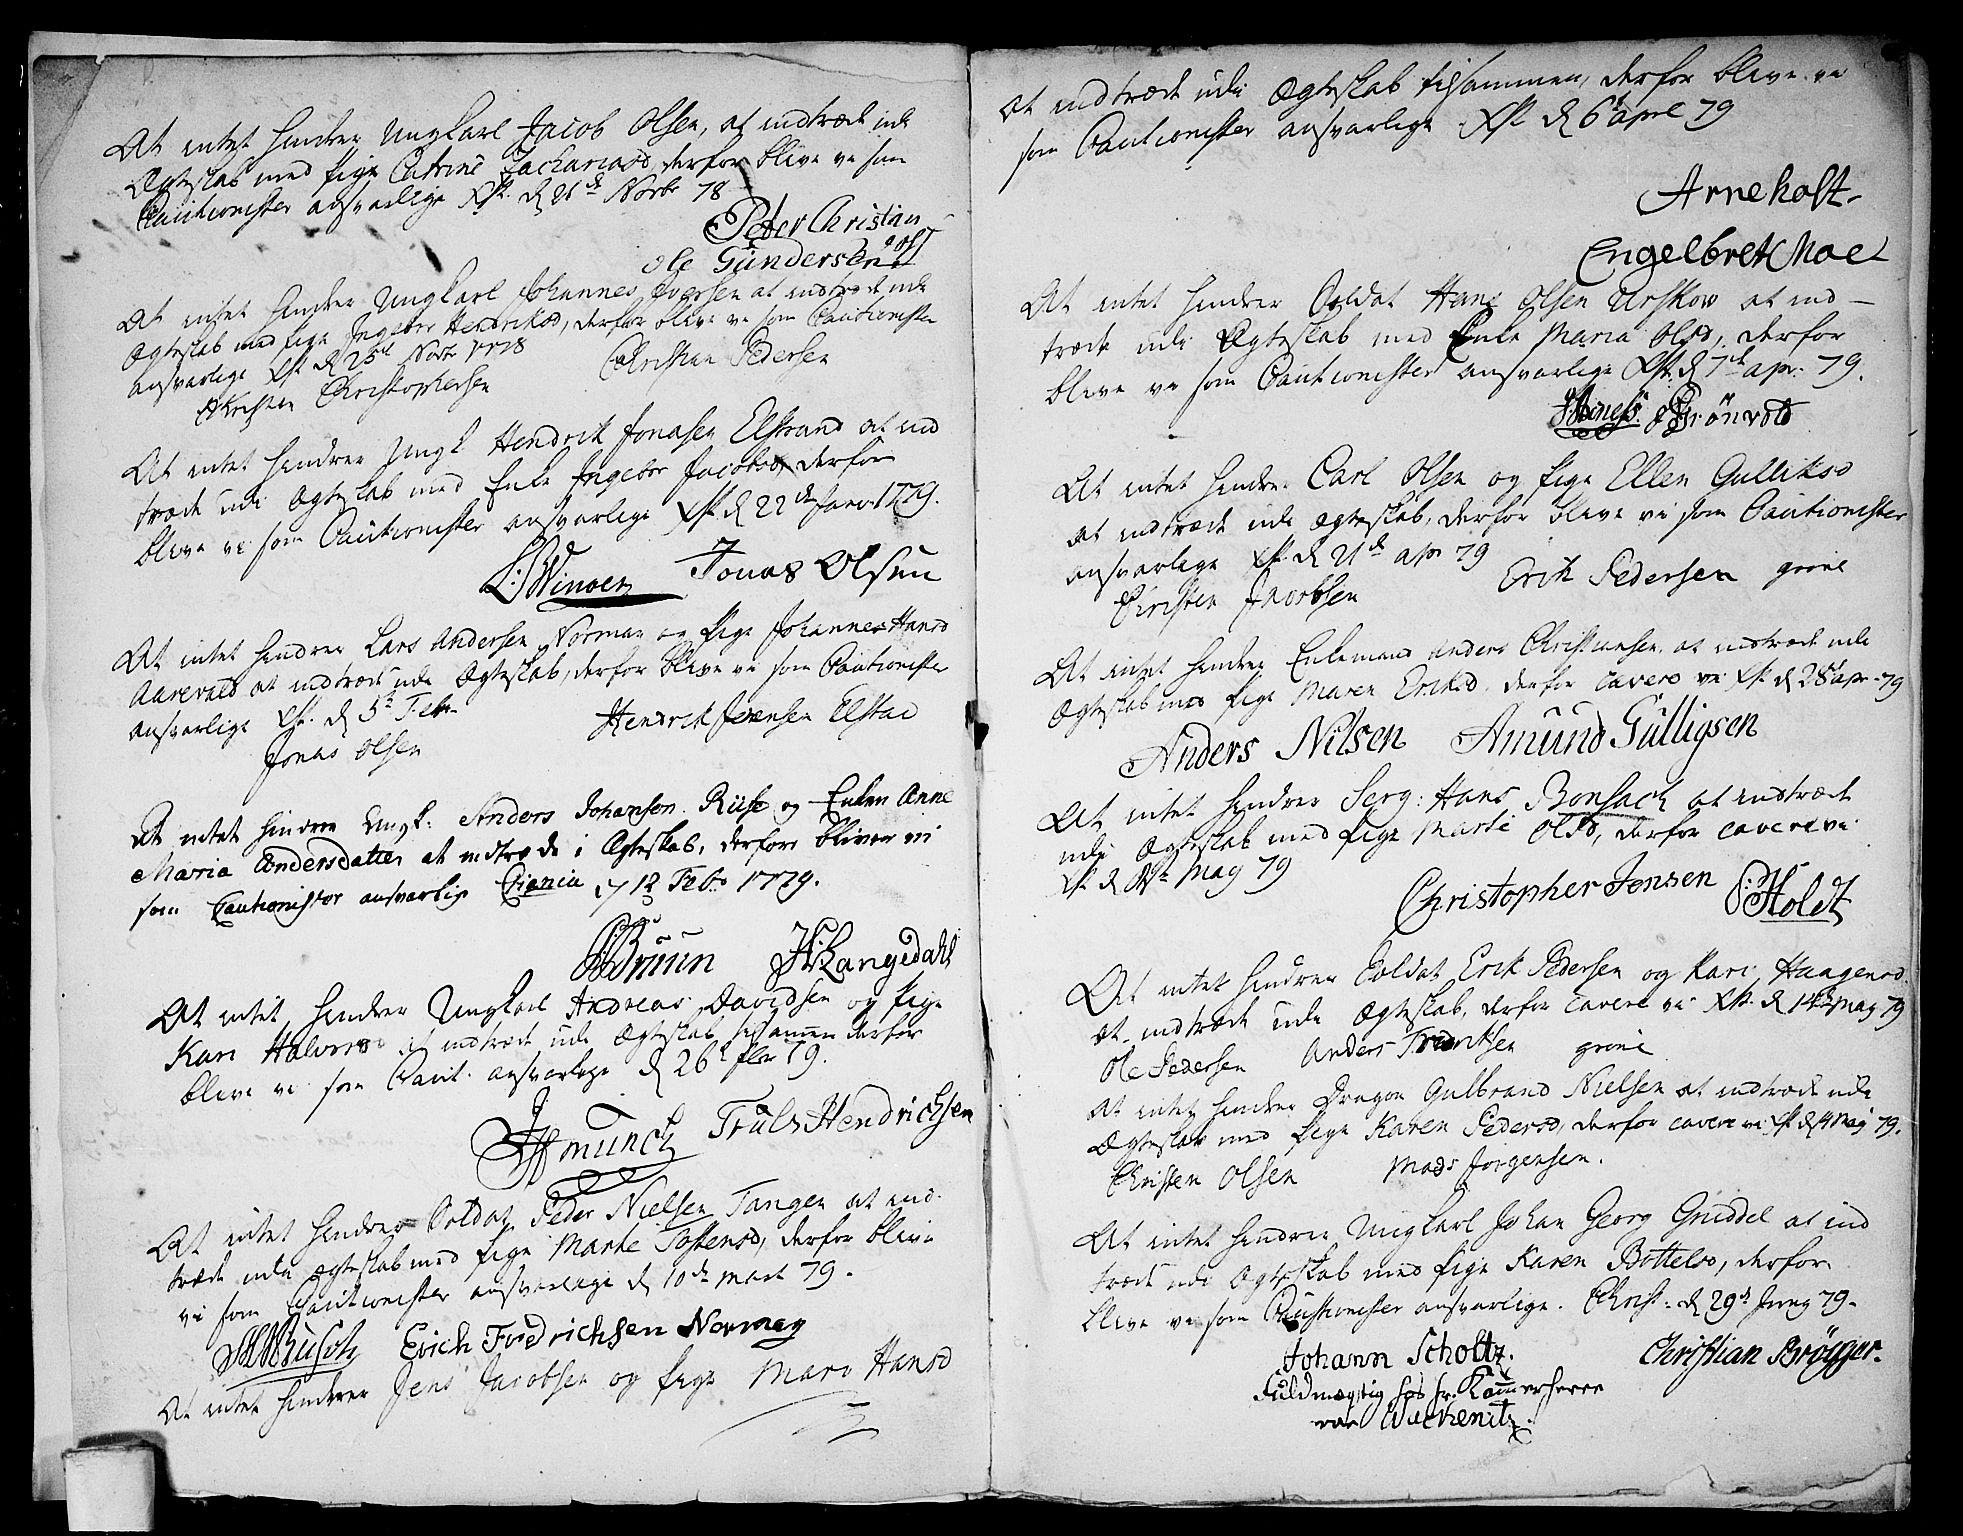 At intet hindrer Ungkarl Jacob Olsen, at indtræde udi
Ægteskab med pige Catrine Zachariasd, derfor blive vi som
Cautionister ansvarlige Xst. d 21de Novbr 78
Peter Christian
Ole Gundersen
At intet hindrer Ungkarl Johannes Iversen at indtræde udi
Ægteskab med pige Ingebor Hendriksd, derfor blive vi som Cautionister
ansvarlige Xst. d 25de Novbr 1778
Christen Christophersen Christian Pedersen
At intet hindrer Ungk. Hendrik Jonasen Elstrand at ind
træde udi Ægteskab med Enke Ingebor Jacobsd, derfor
blive vi som Cautionister ansvarlige Xst. d 22de Janv. 1779.
L: Winder Jonas Olsen
At intet hindrer Lars Andersen Norman og pige Johanne Hansd
Aarevald at indtræde udi Ægteskab, derfor blive vi som Cautionister
ansvarlige Xst. d 5te Febr.
Jonas Olsen Hendrik Jensen Elstad
At intet hindrer Ungk: Anders Johansen Riise og Enken Anne
Maria Andersdatter at indtræde i Ægteskab, derfore bliver vi
som Cautionister ansvarlig Chania 12 Febr 1779.
Bruun H: Langedahl
At intet hindrer Ungkarl Andreas Davidsen og Pige
Kari Halvorsd at indtræde udi Ægteskab tilsamen derfor
blive vi som Caut. ansvarlige d 26t Febr 79.
Munch Truls Hendrichsen
At intet hindrer Soldat Peder Nielsen Tangen at ind
træde udi Ægteskab med pige Marte Tostensd, derfor blive
vi som Cautionister ansvarlige d 10de Mart 79.
Busch Erich Fredrichsen Normay
At intet hindrer Jens Jacobsen og pige Mari Hansd
at indtræde udi Ægteskab tilsammen, derfor blive vi
som Cautionister ansvarlige Xst. d 6t april 79
Arne holt
Engelbret Moe
At intet hindrer Soldat Hans Olsen Urskov at ind
træde udi Ægteskab med Enke Maria Olsd, derfor
blive vi som Cautionister ansvarlige Xst. d 7de apr. 79.
Grönvold
At intet hindrer Carl Olsen og pige Ellen Galliksd
at indtræde udi Ægteskab, derfor blive vi som Cautionister
ansvarlige Xst. d 21de apr 79
Christen Jacobsen Erik Pedersen
At intet hindrer Enkemand Anders Christiansen at indtræde udi
Ægteskab med pige Maren Eriksd, derfor cavere vi Xst. d 28de apr. 79
Anders Nilsen Amund Gulligsen
At intet hindrer Serg: Hans Bonsach at indtræde
udi Ægteskab med pige Marte Olsd, derfor cavere vi
Xst. d May 79
Christopher Jensen Holdt
At intet hindrer Soldat Erik Pedersen og Kari Haagensd
at indtræde udi Ægteskab, derfor cavere vi Xst. d 14de May 79
Ole Pedersen Anders Frantsen
At intet hindrer Dragon Gulbrand Nielsen at indtræde udi
Ægteskab med pige Karen Pedersd, derfor cavere vi Xst. d 14 May 79.
Christen Olsen Mads Jorgensen.
At intet hindrer Ungkarl Johan Georg Gruddel at ind
træde udi Ægteskab med pige Karen Bottelsd, derfor
blive vi som Cautionister ansvarlige. Christ. d 29de Juny 79.
Johann Scholtz. Christian Brögger.
Fuldmægtig hos hr. Kammerherre
von Wackenitz.